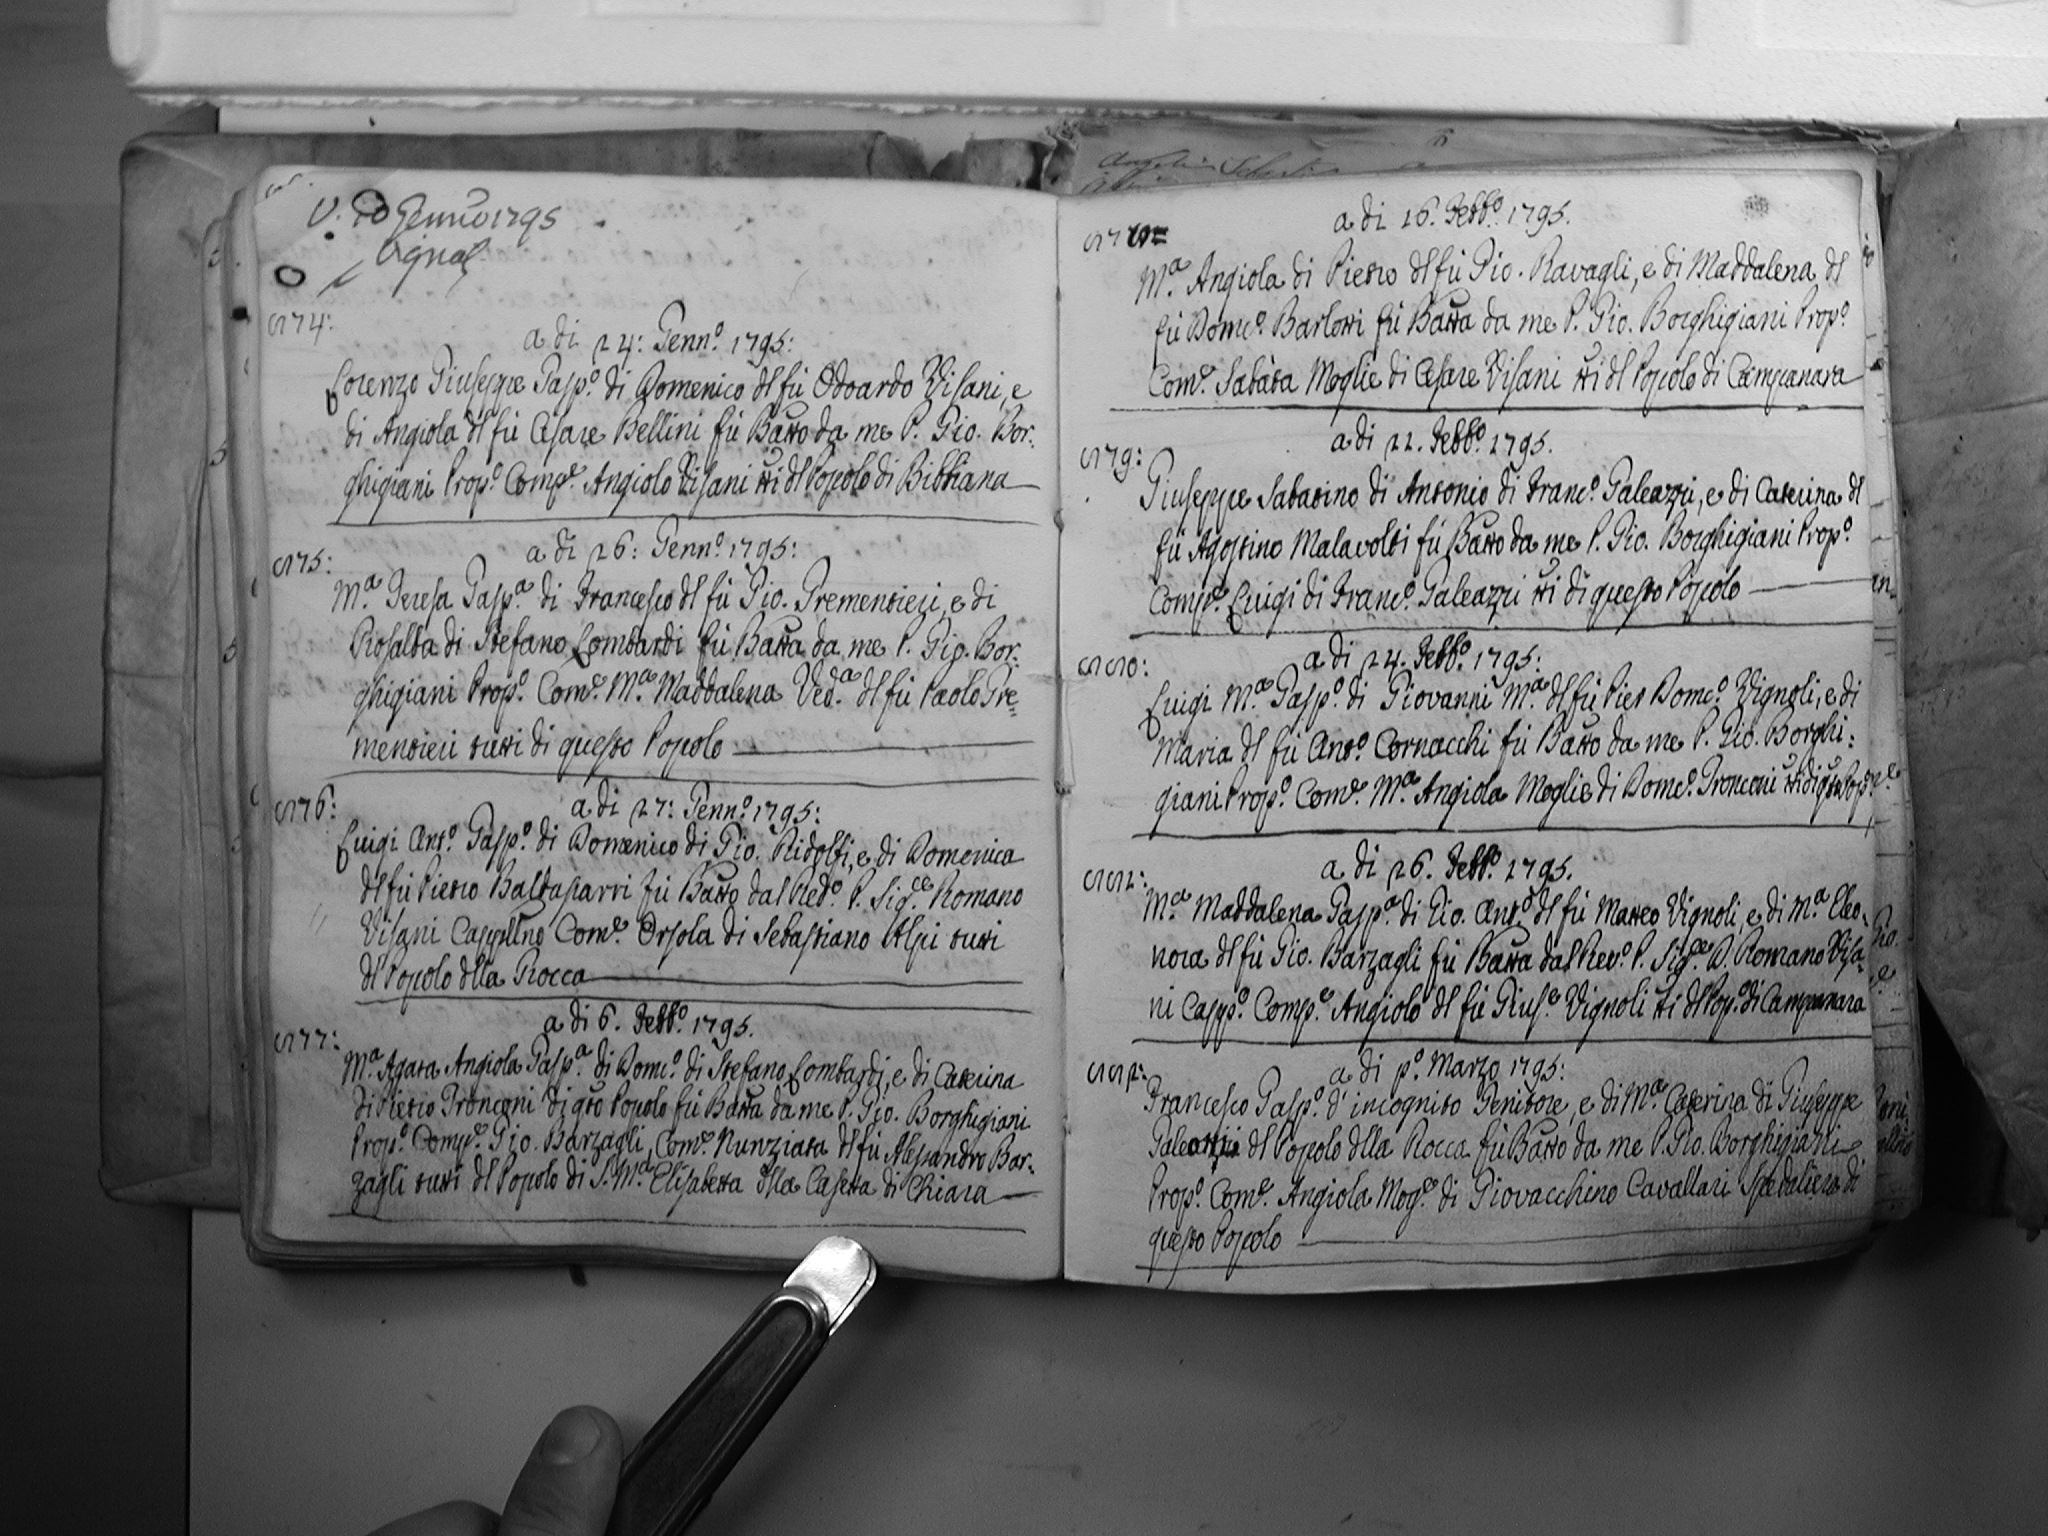 V. 20 Gennro 1795
Vignol
574:
a di 24: Genn.o 1795:
Lorenzo Giuseppe Gasp.o di Domenico dl fù Odoardo Visani, e
di Angiola dl fù Cesare Bellini fù Batto da me P. Gio. Bor:
ghigiani Prop.o Comp.e Angiolo Visani tti dl Popolo di Bibbiana
575:
a di 26: Genn.o 1795:
M.a Teresa Gasp.a di Francesco dl fù Gio. Trementieri, e di
Rosalba di Stefano Lombardi fù Batta da me P. Gio. Bor:
ghigiani Prop.o Com.e M.a Maddalena Ved.a dl fù Paolo Tre=
mentieri tutti di questo Popolo
576:
a di 27: Genn.o 1795:
Luigi Ant.o Gasp.o di Domenico di Gio. Ridolfi, e di Domenica
dl fù Pietro Baldassarri fù Batto dal Red.o P. Sig.re Romano
Visani Cappllno Com.e Orsola di Sebastiano Alpi tutti
dl Popolo dlla Rocca
577:
a di 6. Febb.o 1795.
M.a Agata Angiola Gasp.a di Dom.co di Stefano Lombardi, e di Caterina
di Pietro Tronconi di qto Popolo fù Batta da me P. Gio. Borghigiani
Prop.o Comp.e Gio. Barzagli, Com.e Nunziata dl fù Alessandro Bar:
zagli tutti dl Popolo di S. M.a Elisabetta dlla Casetta di Chiara
a di 16. Febb.o 1795.
M.a Angiola di Pietro dl fù Gio. Ravagli, e di Maddalena dl
fù Dom.co Barlotti fù Batta da me P. Gio. Borghigiani Prop.o
Com.e Sabata Moglie di Cesare Visani tti dl Popolo di Campanara
579:
a di 22. Febb.o 1795.
Giuseppe Sabatino di Antonio di Franc.o Galeazzi, e di Caterina dl
fù Agostino Malavolti fù Batto da me P. Gio. Borghigiani Prop.o
Comp.e Luigi di Franc.o Galeazzi tti di questo Popolo
580:
a di 24. Febb.o 1795:
Luigi M.a Gasp.o di Giovanni M.a dl fù Pier Dom.co Vignoli, e di
Maria dl fù Ant.o Cornacchi fù Batto da me P. Gio. Borghi:
giani Prop.o Com.e M.a Angiola Moglie di Dom.co Tronconi tti di qto Pop.o
581:
a di 26. Febb.o 1795.
M.a Maddalena Gasp.a di Gio. Ant.o dl fù Matteo Vignoli, e di M.a Eleo:
nora dl fù Gio. Barzagli fù Batta dal Rev.o P. Sig.re D. Romano Visa:
ni Capp.o Comp.e Angiolo dl fù Gius.e Vignoli tti dl Pop.o di Campanara
582:
a di p.o Marzo 1795:
Francesco Gasp.o d' incognito Genitore, e di M.a Caterina di Giuseppe
Galeotti dl Popolo dlla Rocca fù Batto da me P. Gio. Borghigiani
Prop.o Com.e Angiola Mog.e di Giovacchino Cavallari Spedaliera di
questo Popolo